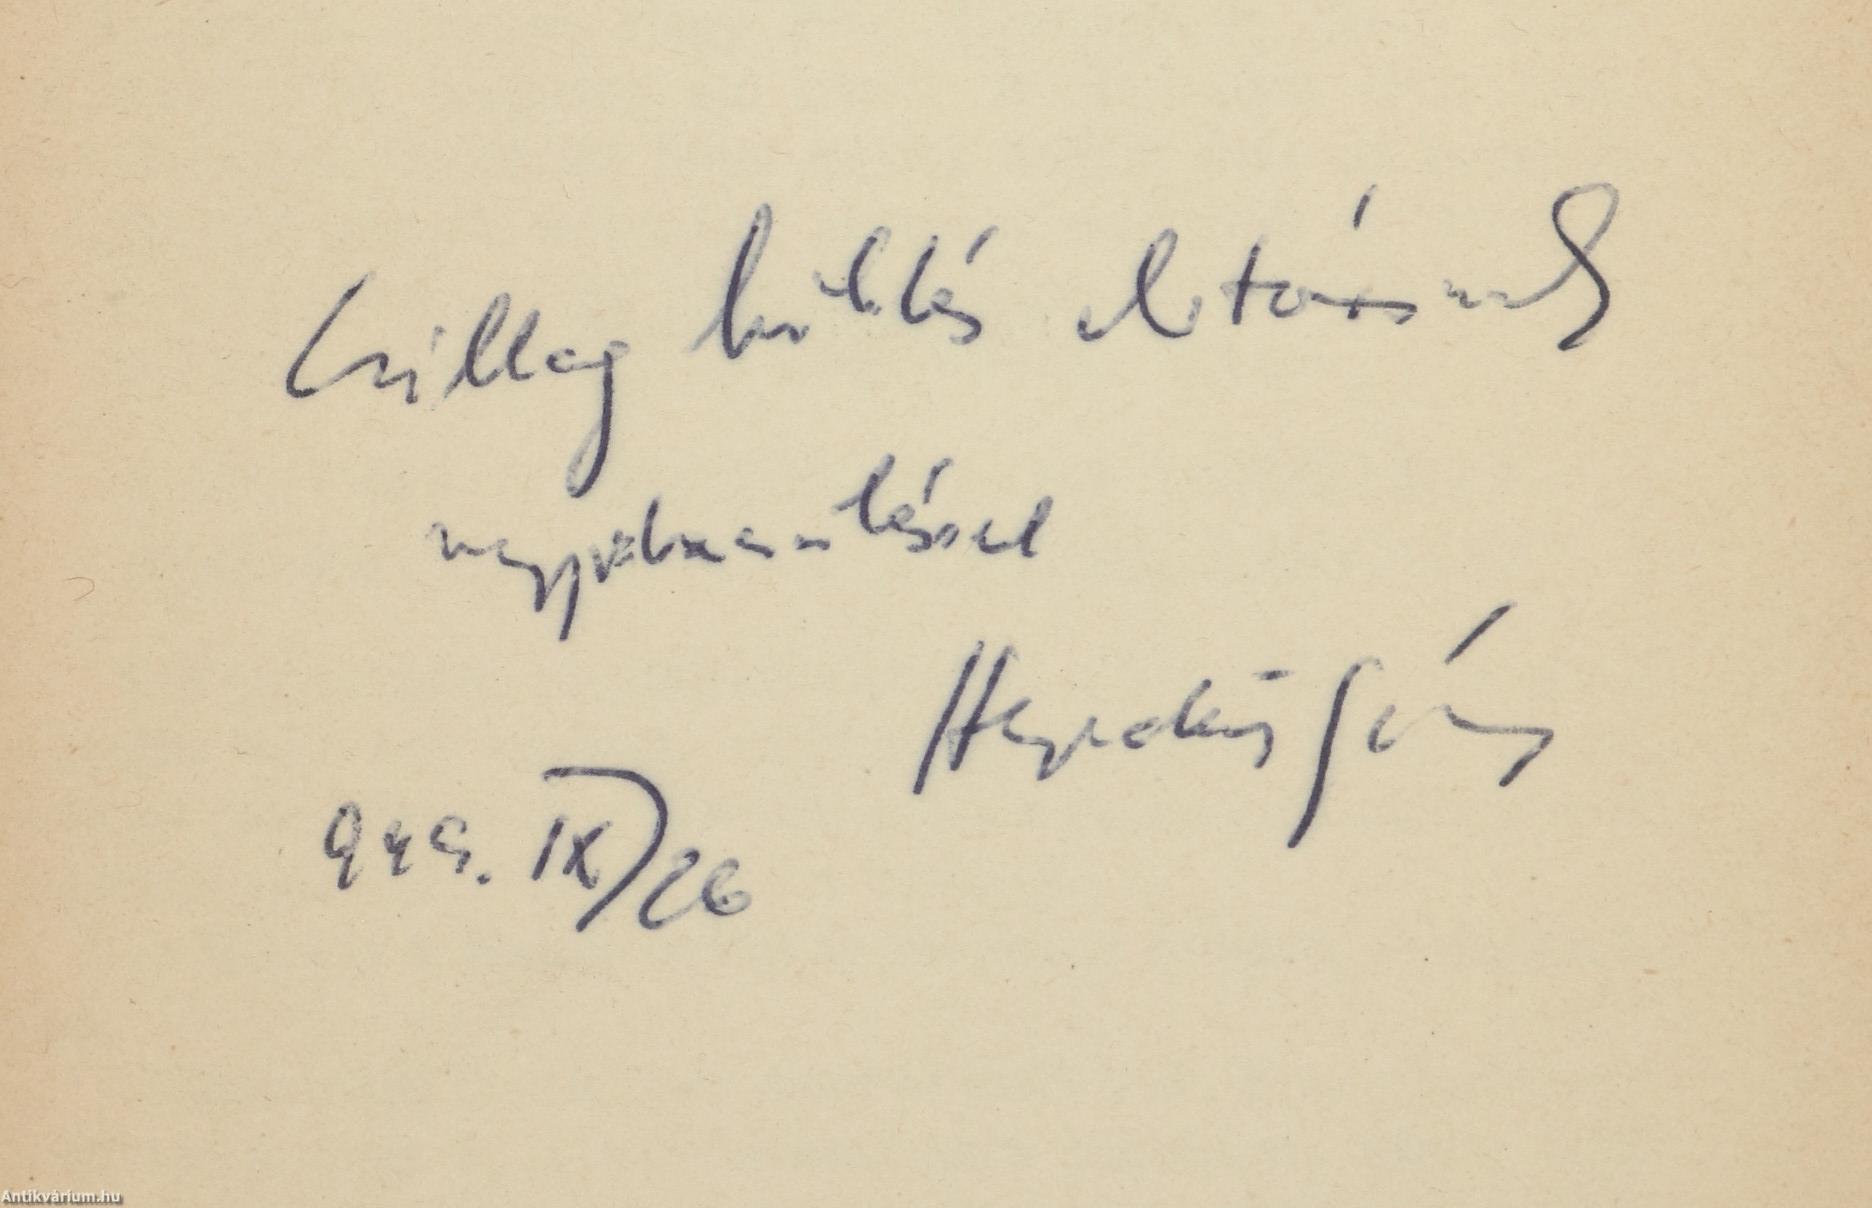 Csillag küldés elvtársnak
nagyrabecsüléssel
Hegedüs Géza
949. IX/26
Antikvárium.hu